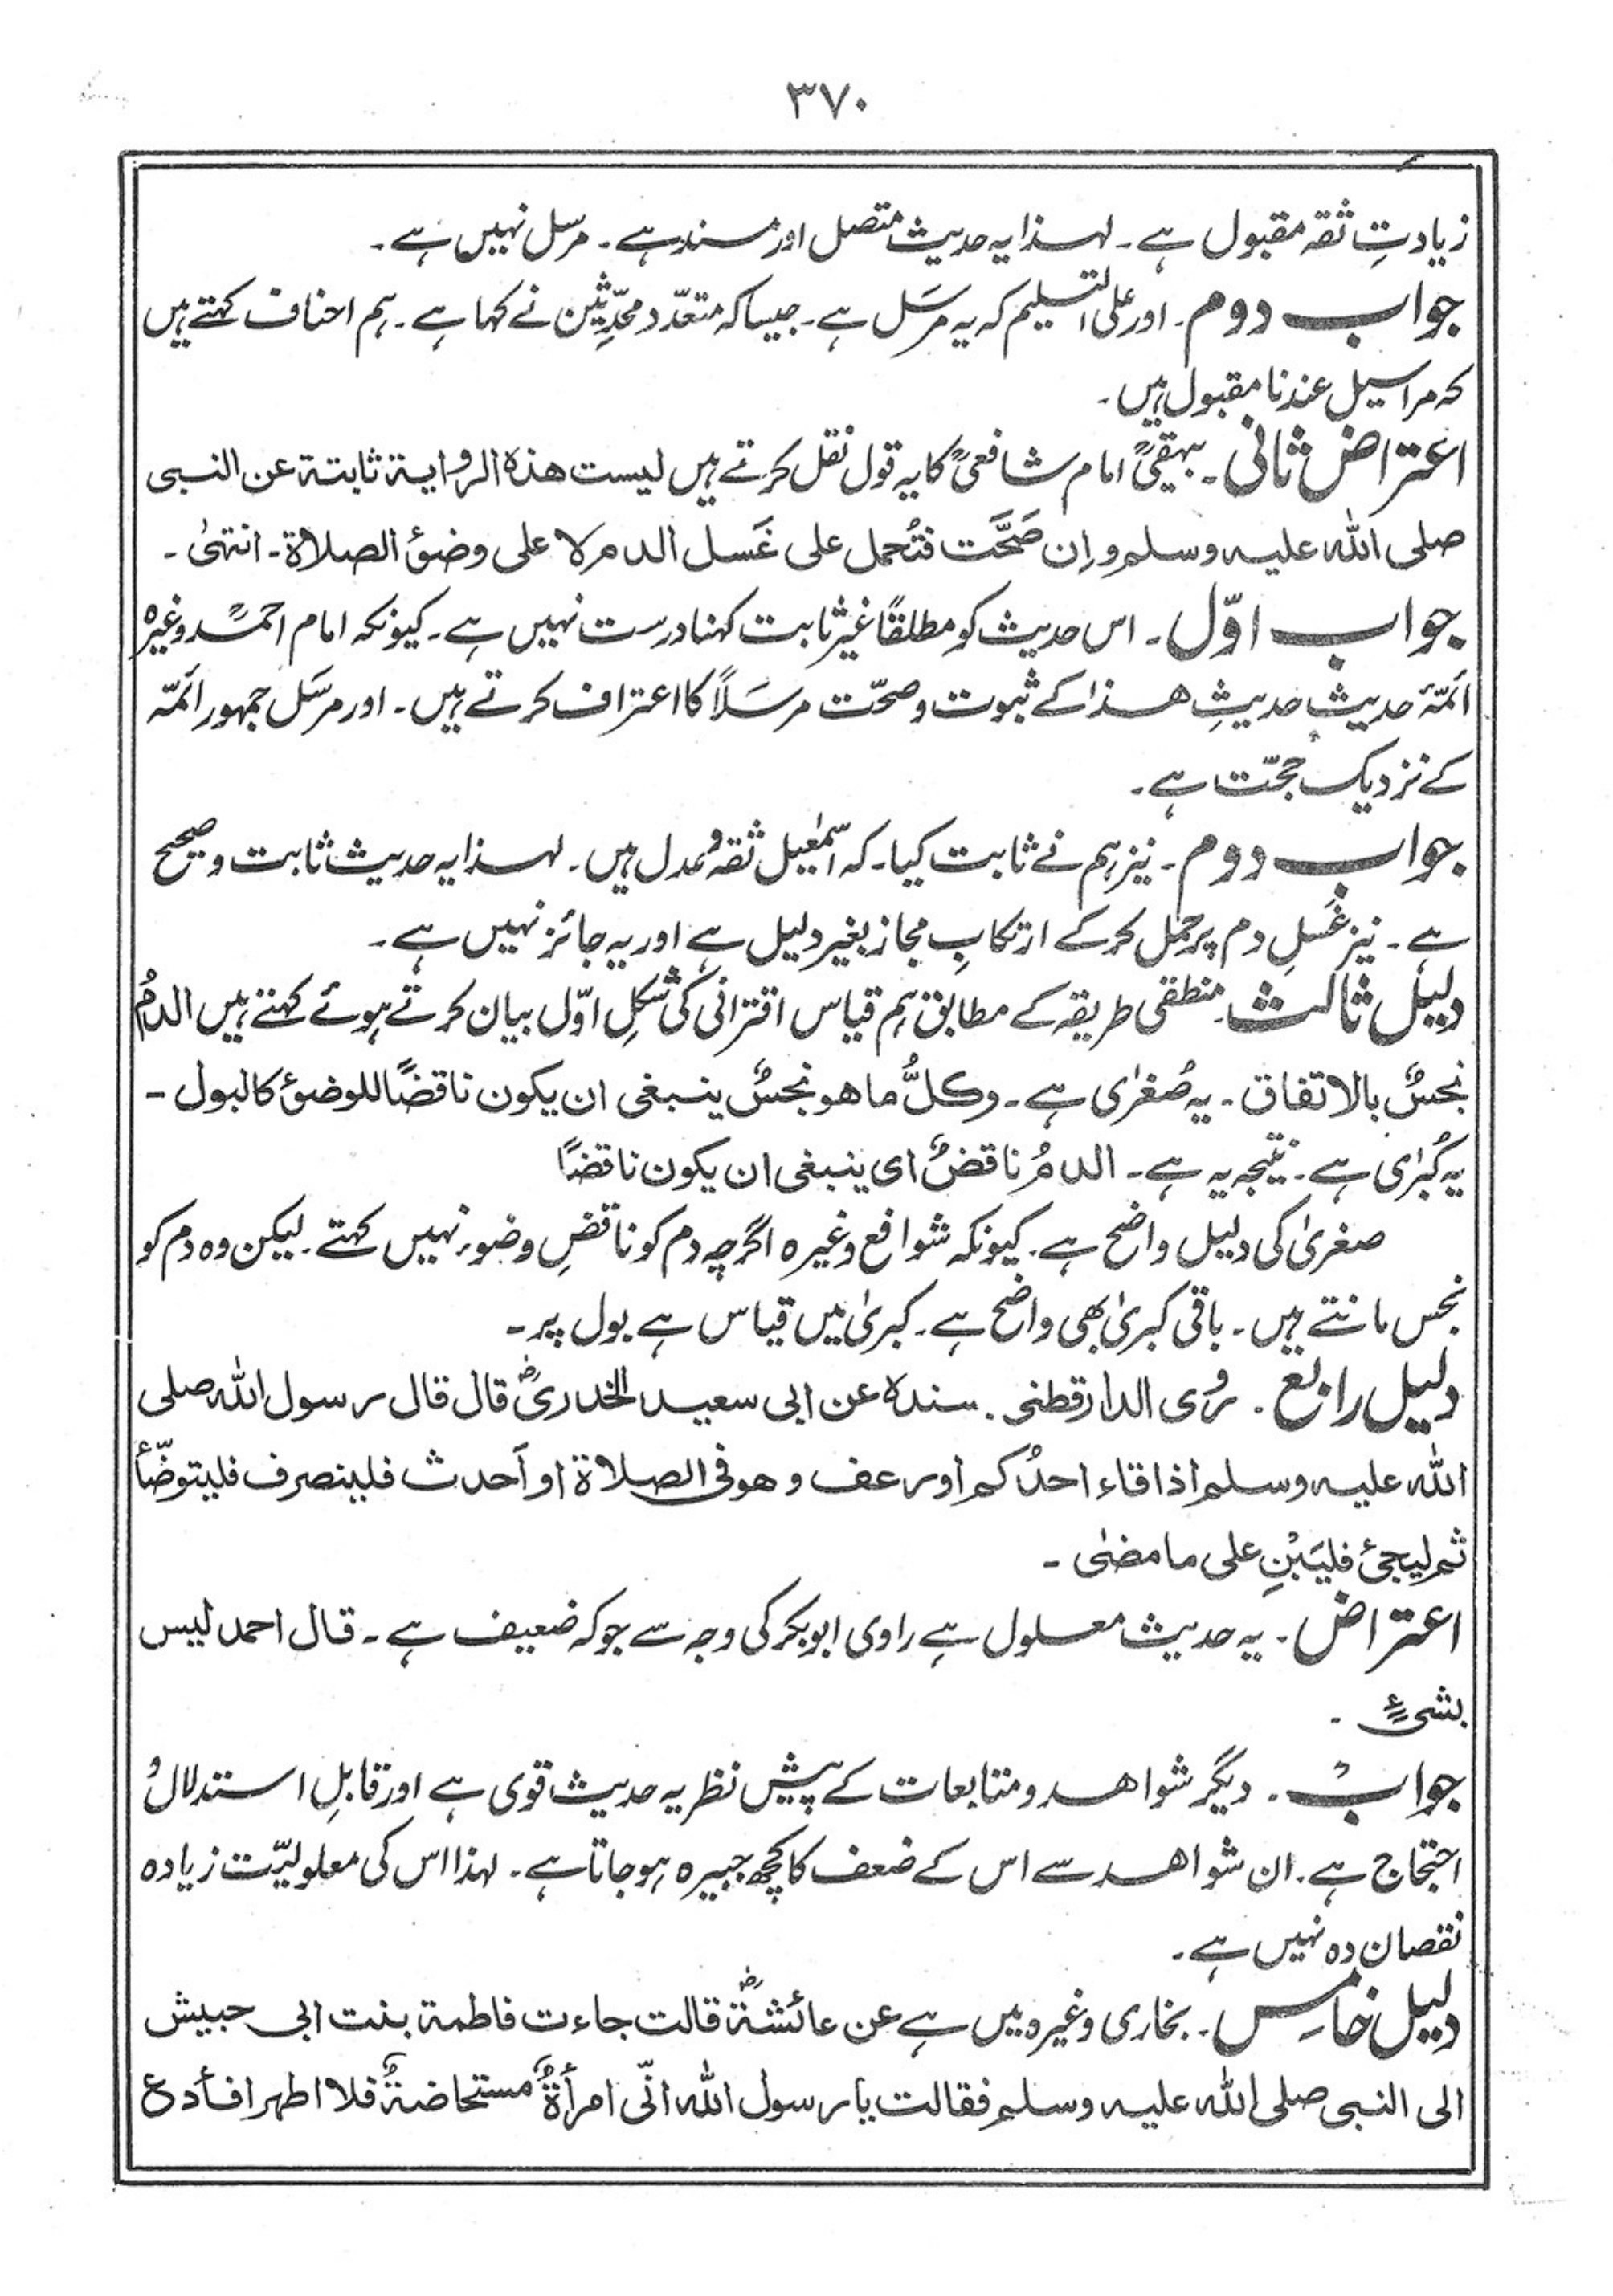 ۳۷۰
زیادتِ ثقہ مقبول ہے ۔ لہٰذا یہ حدیث متصل اور مسند ہے ۔ مرسل نہیں ہے ۔
جواب دوم ۔ اور علی التسلیم کہ یہ مرسَل ہے ۔ جیسا کہ متعدّد محدّثِین نے کہا ہے ۔ ہم احناف کہتے ہیں
کہ مراسیل عندنا مقبول ہیں ۔
اعتراض ثانی ۔ بیہقیؒ امام شافعیؒ کا یہ قول نقل کرتے ہیں لیست ھذہ الروایۃ ثابتۃ عن النبی
صلی اللہ علیہ وسلم و اِن صَحَّت فتُحمل علی غَسل الدم لا علی وضوٴ الصلاۃ ۔ انتھیٰ ۔
جواب اوّل ۔ اس حدیث کو مطلقًا غیر ثابت کہنا درست نہیں ہے ۔ کیونکہ امام احمدؒ وغیرہ
ائمّۂ حدیث حدیثِ ھٰذا کے ثبوت و صحّت مرسَلاً کا اعتراف کرتے ہیں ۔ اور مرسَل جمہور ائمّہ
کے نزدیک حجّت ہے ۔
جواب دوم ۔ نیز ہم نے ثابت کیا ۔ کہ اسمٰعیل ثقہ و عدل ہیں ۔ لہٰذا یہ حدیث ثابت و صحیح
ہے ۔ نیز غَسلِ دم پر حمل کر کے ارتکابِ مجاز بغیر دلیل ہے اور یہ جائز نہیں ہے ۔
دلیل ثالث ۔ منطقی طریقہ کے مطابق ہم قیاس اقترانی کی شکلِ اوّل بیان کرتے ہوئے کہتے ہیں الدمُ
نجسٌ بالاتفاق ۔ یہ صُغرٰی ہے ۔ وکلُّ ما ھو نجسٌ ینبغی ان یکون ناقضًا للوضوٴ کالبول ۔
یہ کُبرٰی ہے ۔ نتیجہ یہ ہے ۔ الدمُ ناقضٌ ای ینبغی ان یکون ناقضًا
صغریٰ کی دلیل واضح ہے ۔ کیونکہ شوافع وغیرہ اگرچہ دم کو ناقضِ وضوء نہیں کہتے ۔ لیکن وہ دم کو
نجس مانتے ہیں ۔ باقی کبریٰ بھی واضح ہے ۔ کبریٰ میں قیاس ہے بول پر ۔
دلیل رابع ۔ رُوی الدارقطنی ۔ بسندہ عن ابی سعید الخدریؓ قال قال رسول اللہ صلی
اللہ علیہ وسلم اذا قاء احدُکم او رعف و ھو فی الصلاۃ او اَحدث فلینصرف فلیتوضّأ
ثم لیجئ فلیَبْنِ علی ما مضیٰ ۔
اعتراض ۔ یہ حدیث معلول ہے راوی ابوبکر کی وجہ سے جو کہ ضعیف ہے ۔ قال احمد لیس
بشیءٍ ۔
جواب ۔ دیگر شواھد و متابعات کے پیش نظر یہ حدیث قوی ہے اور قابلِ استدلال و
احتجاج ہے ۔ ان شواھد سے اس کے ضعف کا کچھ جبیرہ ہو جاتا ہے ۔ لہذا اس کی معلولیّت زیادہ
نقصان دہ نہیں ہے ۔
دلیل خامس ۔ بخاری وغیرہ میں ہے عن عائشۃؓ قالت جاءت فاطمۃ بنت ابی حبیش
الی النبی صلی اللہ علیہ وسلم فقالت یا رسول اللہ انّی امرأۃٌ مستحاضۃٌ فلا اطھر افأدع